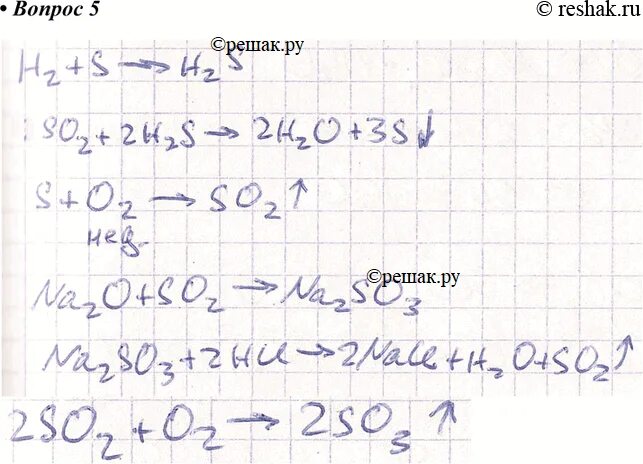 • Вопрос 5
© reshak.ru
©решак.ру
H₂ + S → H₂S
SO₂ + 2H₂S → 2H₂O + 3S↓
S + O₂ → SO₂↑
нед.
©решак.ру
Na₂O + SO₂ → Na₂SO₃
Na₂SO₃ + 2HCl → 2NaCl + H₂O + SO₂↑
2SO₂ + O₂ → 2SO₃↑